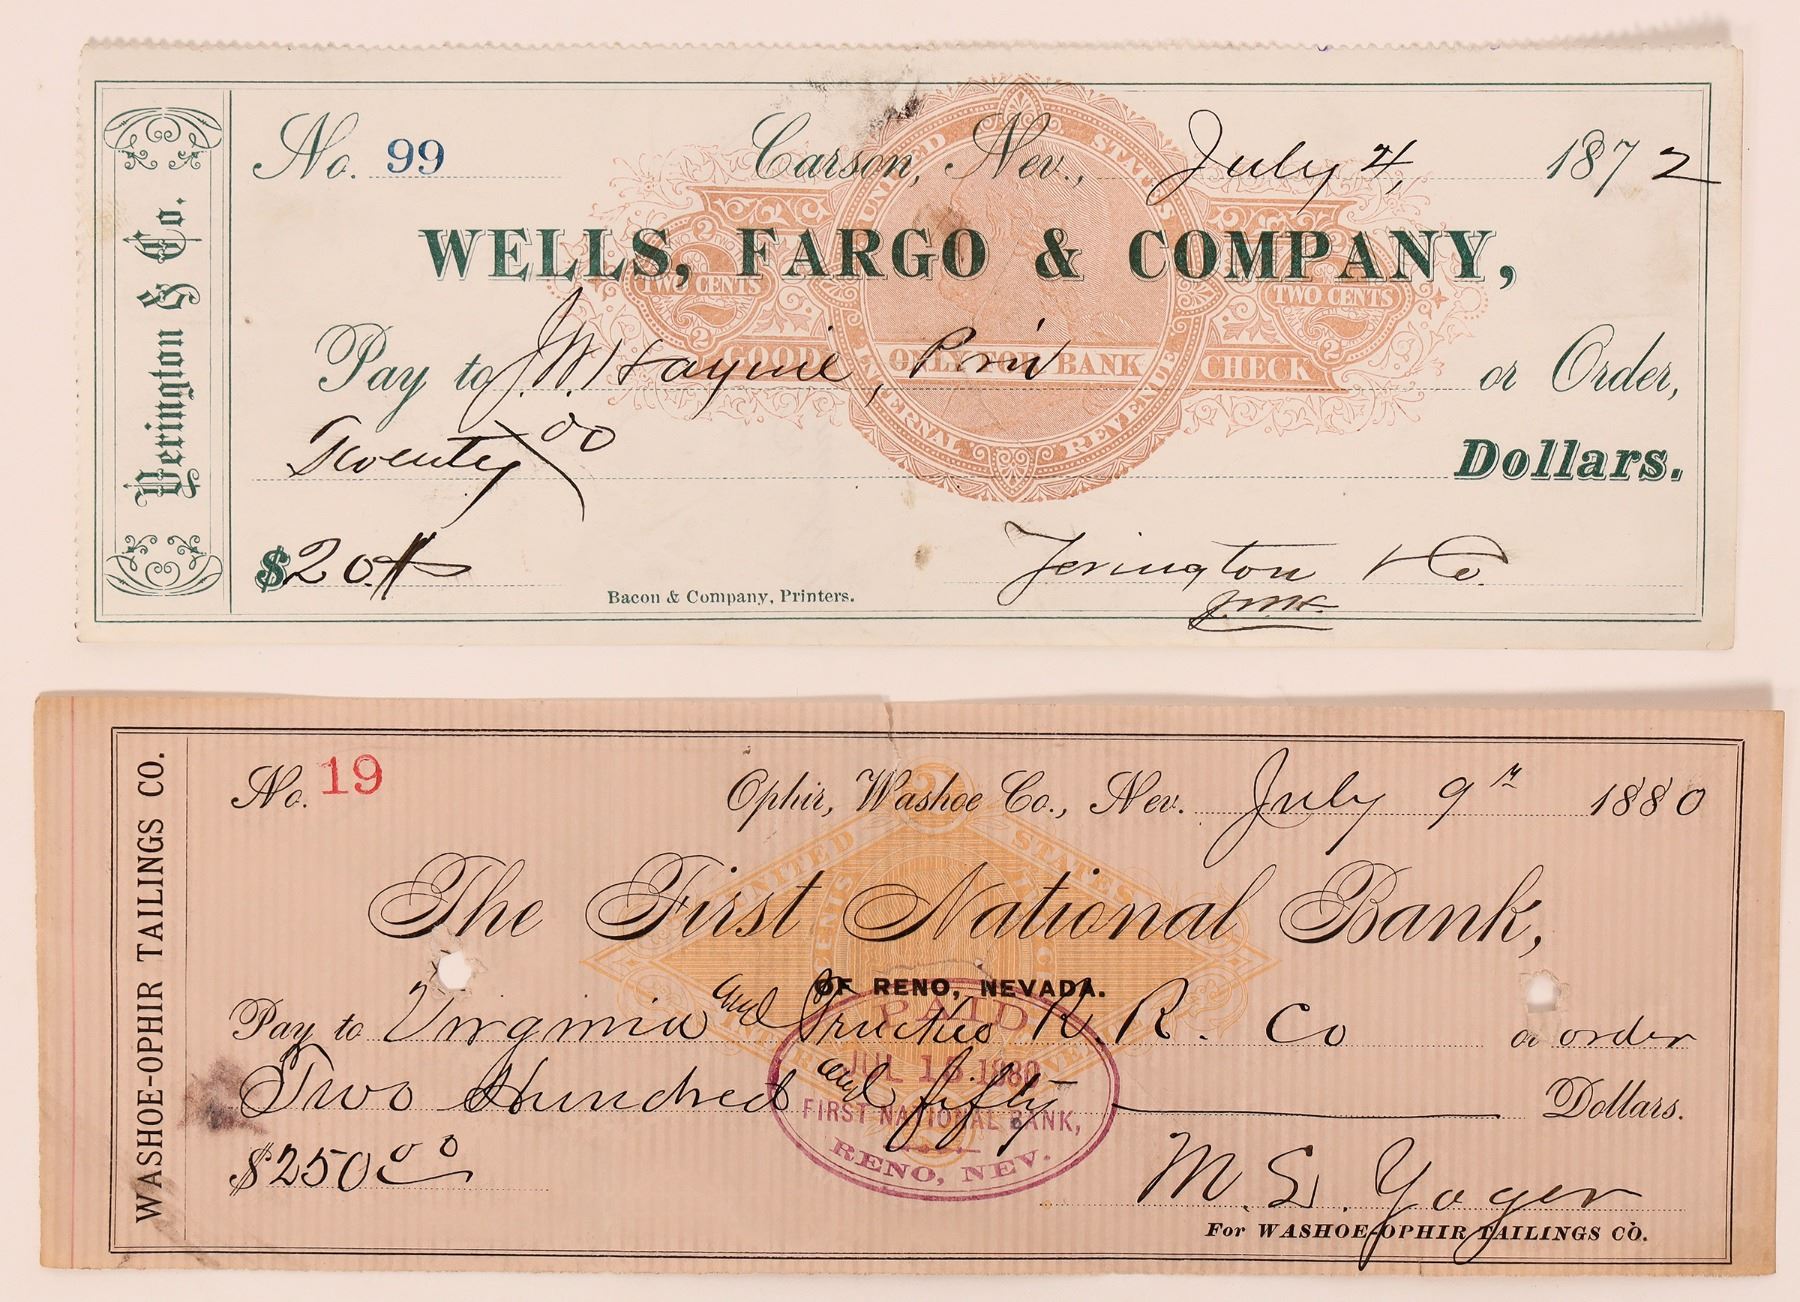 Yerington & Co.
No. 99 Carson, Nev., July 4, 1872
WELLS, FARGO & COMPANY,
UNITED STATES
TWO CENTS TWO CENTS
2 2
Pay to J. W. Haynie, Prin or Order,
GOOD ONLY FOR BANK CHECK
INTERNAL REVENUE
Twenty 00 Dollars.
$20.
Yerington & Co.
Bacon & Company, Printers.
WASHOE-OPHIR TAILINGS CO.
No. 19 Ophir, Washoe Co., Nev. July 9th 1880
UNITED STATES
The First National Bank,
OF RENO, NEVADA.
Pay to Virginia and Truckee R. R. Co or order
Two Hundred and fifty Dollars.
PAID
JUL 13 1880
FIRST NATIONAL BANK,
RENO, NEV.
$250 00
M. S. Yager
For WASHOE-OPHIR TAILINGS CO.